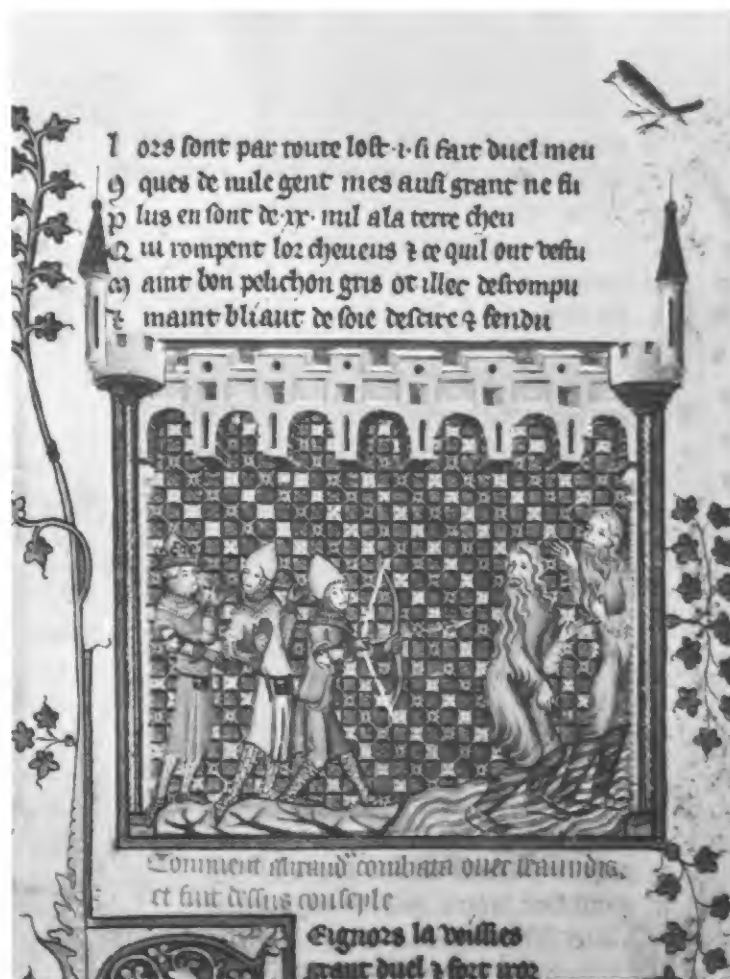 l ors sont par toute lost · i · si fait duel meu
q ques de nule gent mes ausi grant ne fu
p lus en sont de · xx · mil a la terre cheu
Q ui rompent lor cheueus ⁊ ce quil ont vestu
m aint bon pelichon gris ot illec desrompu
⁊ maint bliaut de soie descire ⁊ fendu
Comment
et fut dessus
Seignors la veissies
grant duel ⁊ fort